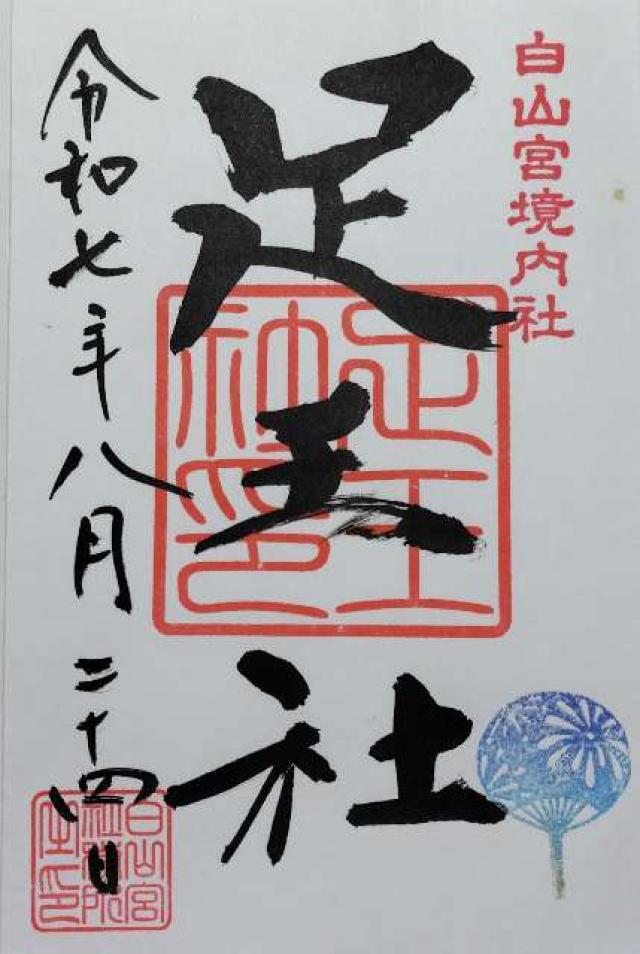 白山宮境内社
足王社
足王社印
令和七年八月二十四日
白山宮